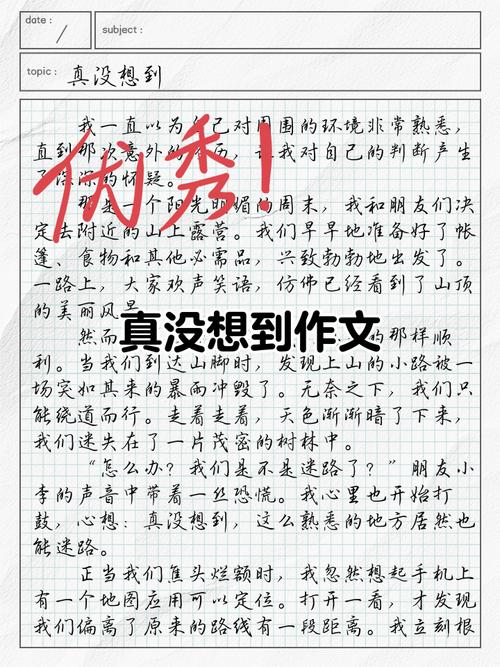 date:
/
subject:
topic: 真没想到
我一直以为自己对周围的环境非常熟悉，
直到那次意外的经历，让我对自己的判断产生
了深深的怀疑。
那是一个阳光明媚的周末，我和朋友们决
定去附近的山上露营。我们早早地准备好了帐
篷、食物和其他必需品，兴致勃勃地出发了。
一路上，大家欢声笑语，仿佛已经看到了山顶
的美丽风景
然而 的那样顺
利。当我们到达山脚时，发现上山的小路被一
场突如其来的暴雨冲毁了。无奈之下，我们只
能绕道而行。走着走着，天色渐渐暗了下来，
我们迷失在了一片茂密的树林中。
“怎么办？我们是不是迷路了？”朋友小
李的声音中带着一丝恐慌。我心里也开始打
鼓，心想：真没想到，这么熟悉的地方居然也
能迷路。
正当我们焦头烂额时，我忽然想起手机上
有一个地图应用可以定位。打开一看，才发现
我们偏离了原来的路线有一段距离。我立刻根
优秀！
真没想到作文